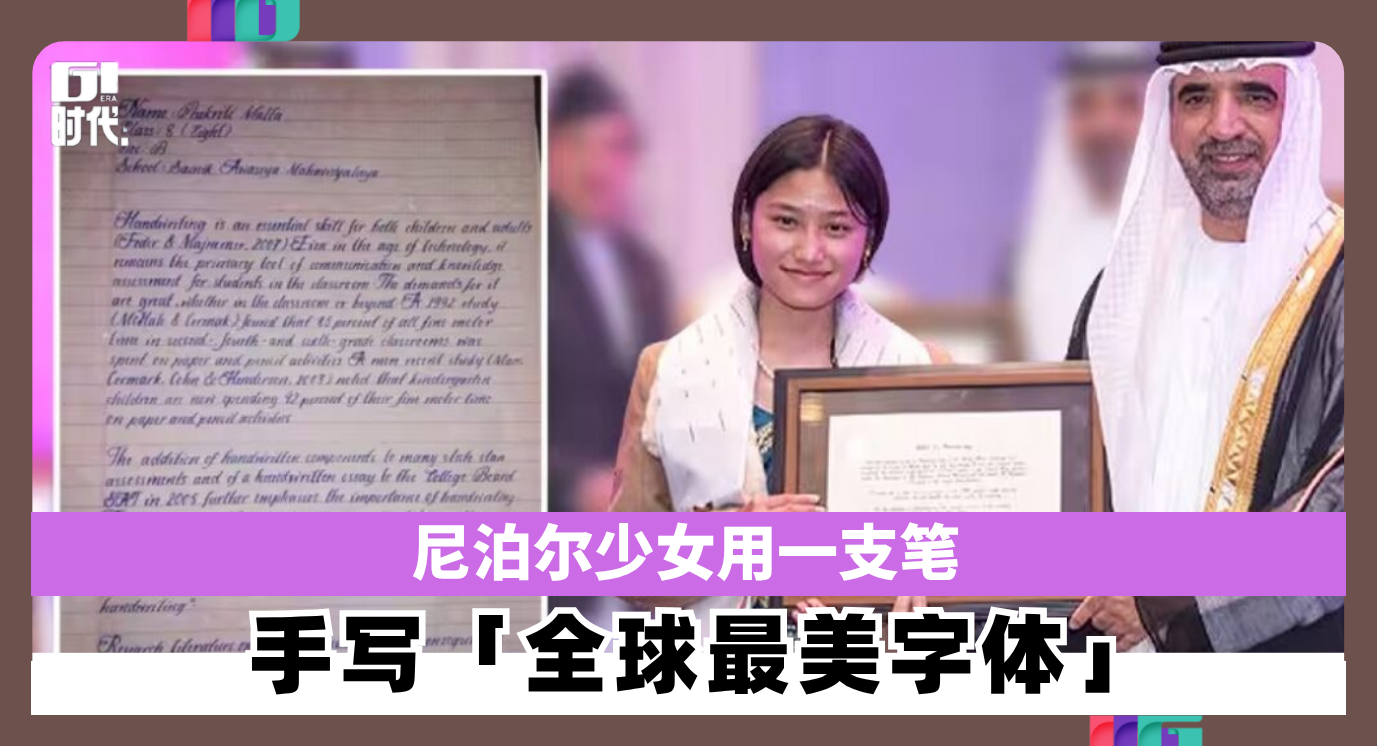 G!
ERA
时代.
Name: Prakriti Malla
Class: 8 (Eight)
Sec: B
School: Sainik Awasiya Mahavidyalaya
Handwriting is an essential skill for both children and adults
(Feder & Majnemer, 2007). Even in the age of technology, it
remains the primary tool of communication and knowledge
assessment for students in the classroom. The demands for it
are great, whether in the classroom or beyond. A 1992 study
(McHale & Cermak) found that 85 percent of all fine motor
time in second-, fourth- and sixth-grade classrooms was
spent on paper and pencil activities. A more recent study (
Cermark, Cohn & Henderson, 2003) noted that kindergarten
children are now spending 42 percent of their fine motor time
on paper and pencil activities
The addition of handwritten components to many state stan
assessments and of a handwritten essay to the College Board
SAT in 2005 further emphasises the importance of handwriting
handwriting".
Research literature
尼泊尔少女用一支笔
手写「全球最美字体」